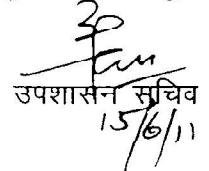 उपशासन सचिव
15/6/11